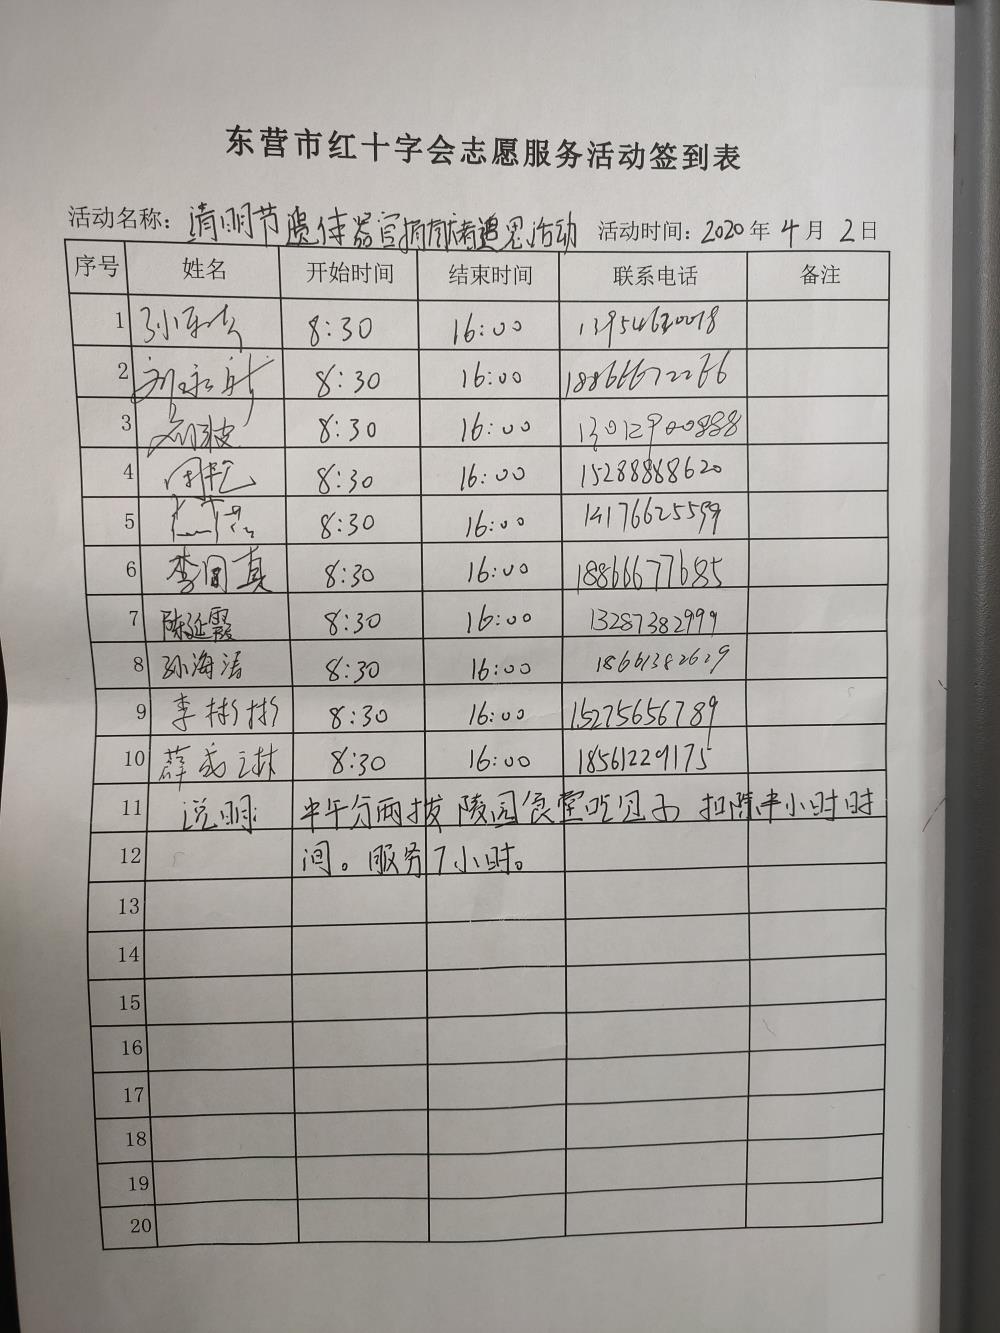 东营市红十字会志愿服务活动签到表
活动名称：清明节遗体器官捐献者追思活动 活动时间：2020年4月2日
序号 姓名 开始时间 结束时间 联系电话 备注
1 8:30 16:00
2 8:30 16:00 18866672266
3 8:30 16:00
4 8:30 16:00 15288888620
5 8:30 16:00
6 李同真 8:30 16:00 18866677685
7 陈延霞 8:30 16:00 13287382999
8 孙海涛 8:30 16:00 18661382629
9 李彬彬 8:30 16:00 15275656789
10 薛 8:30 16:00 18561229175
11 说明: 中午分两拨陵园食堂吃包子 扣除半小时时
12 间。服务7小时。
13
14
15
16
17
18
19
20